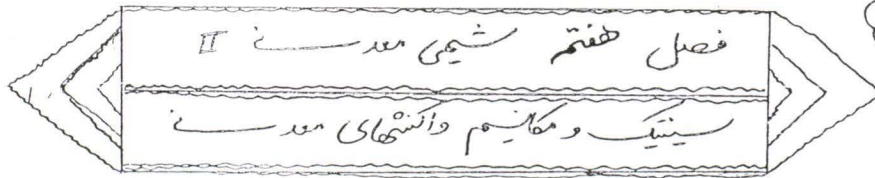 فصل هفتم شیمی معدنی II
سینتیک و مکانیسم واکنشهای معدنی